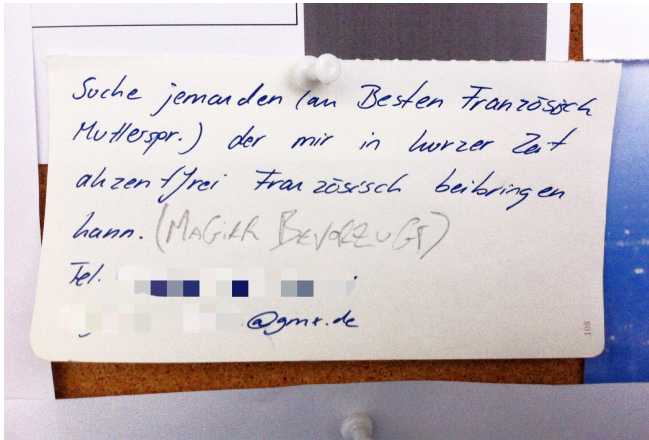 Suche jemanden (am Besten Französisch
Mutterspr.) der mir in kurzer Zeit
akzentfrei Französisch beibringen
kann. (MAGIER BEVORZUGT)
Tel.
@gmx.de
108